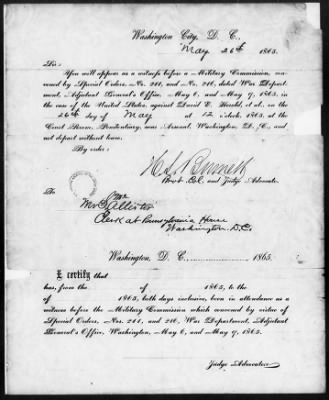 Washington City, D. C.,
May 26th 1865.
Sir:
You will appear as a witness before a Military Commission, con-
vened by Special Orders, No. 211, and No. 216, dated War Depart-
ment, Adjutant General's Office, May 6, and May 9, 1865, in
the case of the United States, against David E. Herold, et al., on the
26th day of May at 12 o'clock, 1865, at the
Court Room, Penitentiary, near Arsenal, Washington, D. C., and
not depart without leave.
By order:
H L Burnett
Bvt. Col. and Judge Advocate.
To
Mr
McAllister
Clerk at Pennsylvania House
Washington D.C.
Washington, D. C., 1865.
I certify that
has, from the of 1865, to the
of 1865, both days inclusive, been in attendance as a
witness before the Military Commission which convened by virtue of
Special Orders, Nos. 211, and 216, War Department, Adjutant
General's Office, Washington, May 6, and May 9, 1865.
Judge Advocate.